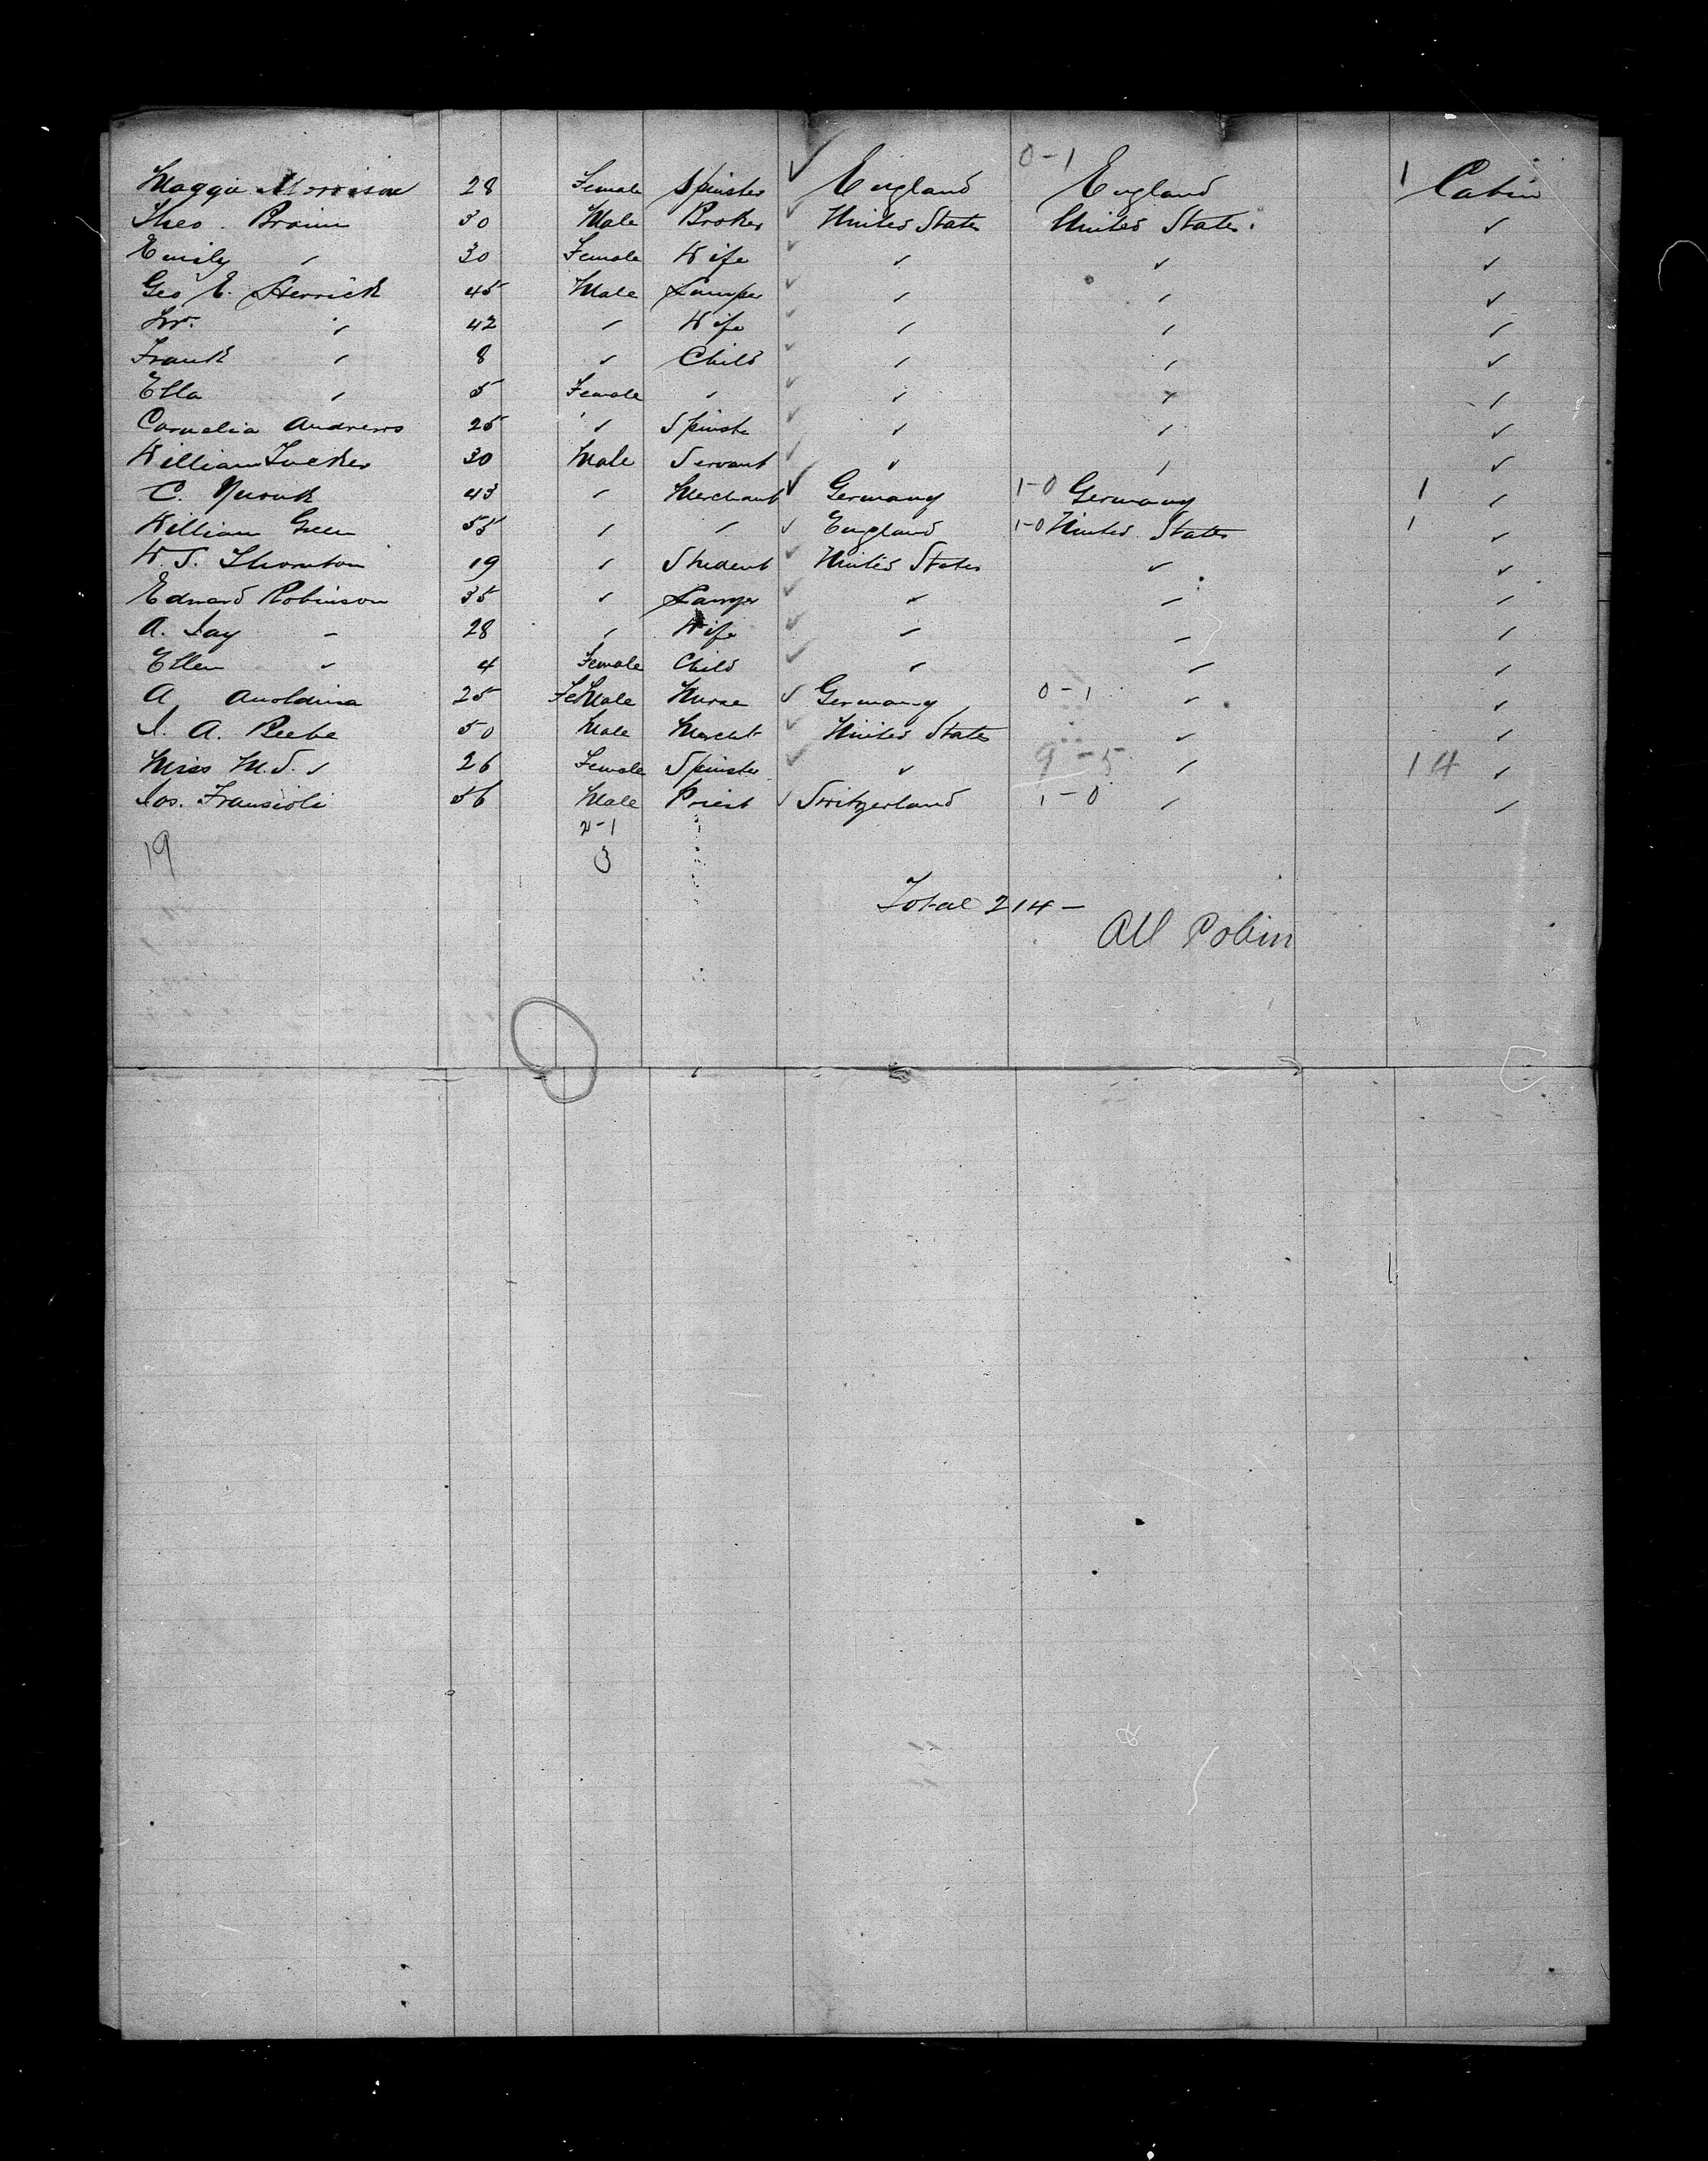 0-1
Maggie Morrison 28 Female Spinster ✓ England England 1 Cabin
Theo. Braim 30 Male Broker ✓ United States United States. ✓
Emily " 30 Female Wife ✓ ✓ ✓ ✓
Geo E. Herrick 45 Male ✓ ✓ ✓ ✓
" 42 " Wife ✓ ✓ ✓ ✓
Frank " 8 " Child ✓ ✓ ✓ ✓
Ella " 5 Female " ✓ ✓ ✓ ✓
Cornelia Andrews 25 " Spinste ✓ ✓ ✓ ✓
William Tucker 30 Male Servant ✓ ✓ ✓ ✓
C. 43 " Merchant ✓ Germany 1-0 Germany 1 ✓
William Green 55 " " ✓ England 1-0 United States 1 ✓
W. S. Thornton 19 " Student ✓ United States ✓ ✓
Edward Robinson 35 " Lawyer ✓ ✓ ✓ ✓
A. Jay " 28 " Wife ✓ ✓ ✓ ✓
Ellen " 4 Female Child ✓ ✓ ✓ ✓
A 25 FeMale Nurse ✓ Germany 0-1 ✓ ✓
J. A. Beebe 50 Male Mercht ✓ United States ✓ ✓
Miss M. S. " 26 Female Spinster ✓ ✓ 9-5 ✓ 14 ✓
Jos. Fransioli 56 Male Priest ✓ Switzerland 1-0 ✓ ✓
2-1
19 3
Total 214 -
All Cabin